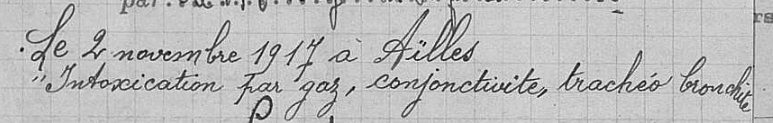 Le 2 novembre 1917 à Aïlles
"Intoxication par gaz, conjonctivite, trachéo bronchite